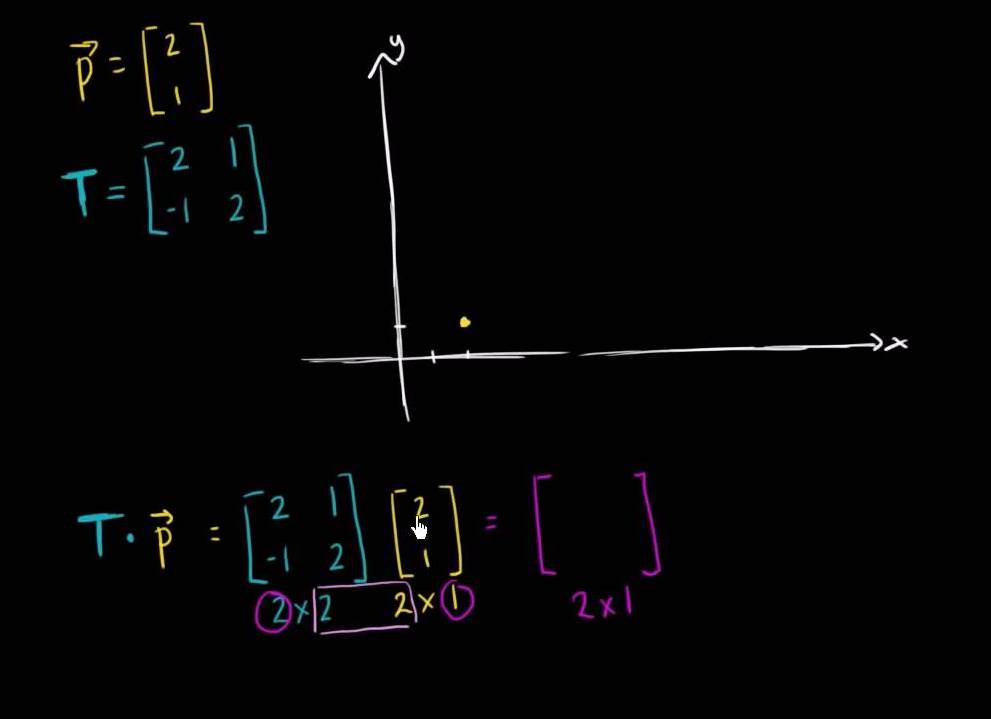 p⃗ = [2
1]
T = [2 1
-1 2]
y
x
T · p⃗ = [2 1
-1 2] [2
1] = [ ]
2 x 2 2 x 1 2 x 1